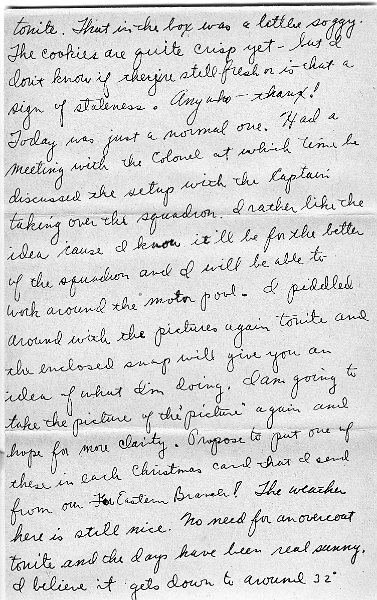 tonite. That in the box was a little soggy.
The cookies are quite crisp yet - but I
don't know if they're still fresh or is that a
sign of staleness. Anywho - thanx!
Today was just a normal one. Had a
meeting with the Colonel at which time he
discussed the setup with the Captain
taking over the squadron. I rather like the
idea 'cause I know it'll be for the better
of the squadron and I will be able to
work around the motor pool. I piddled
around with the pictures again tonite and
the enclosed snap will give you an
idea of what I'm doing. I am going to
take the picture of the "picture" again and
hope for more clarity. Propose to put one of
these in each Christmas card that I send
from our Far Eastern Branch! The weather
here is still nice. No need for an overcoat
tonite and the days have been real sunny.
I believe it gets down to around 32°